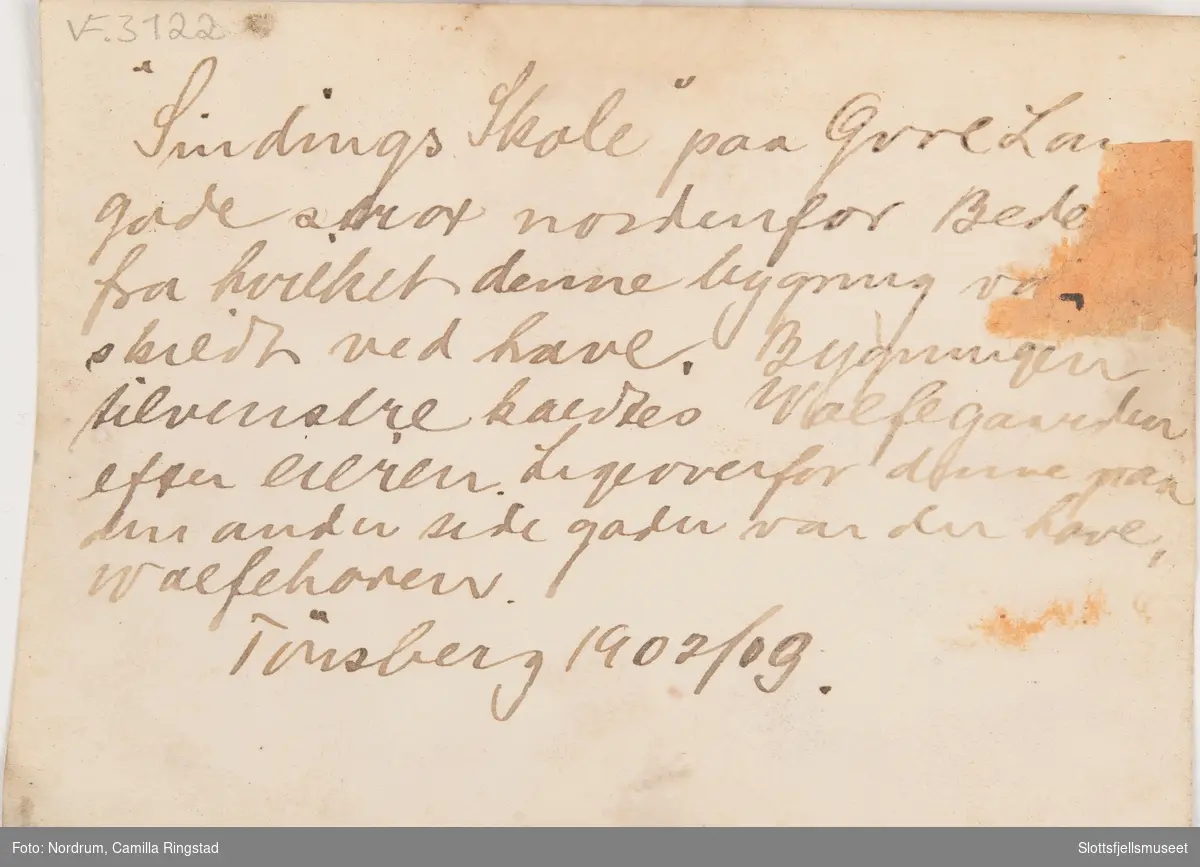 VF.3122
"Sindings Skole" paa Øvre La
gade strax nordenfor Bede
fra hvilket denne bygning va
skiedt ved have. Bygningen
tilvenstre kaldtes Wolffegaarden
efter eieren. Ligeoverfor denne paa
den anden side gaden var den have,
Wolffehaven.
Tönsberg 1902/09.
Foto: Nordrum, Camilla Ringstad
Slottsfjellsmuseet